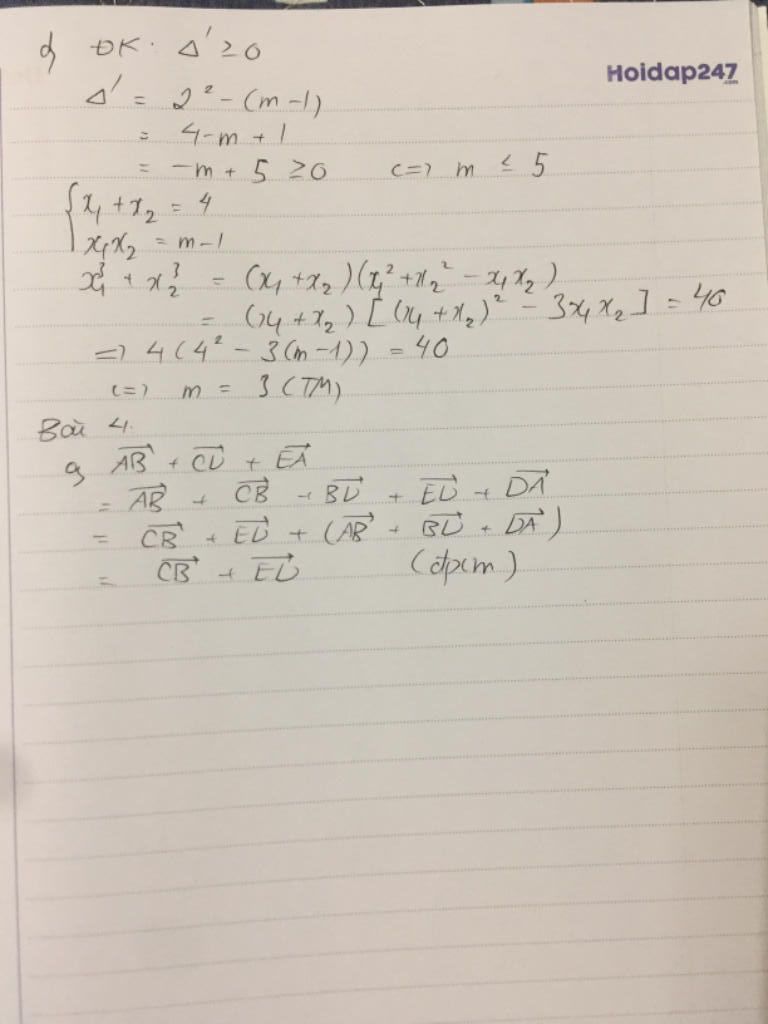 d) ĐK: Δ' ≥ 0
Hoidap247
.com
Δ' = 2² - (m-1)
= 4-m + 1
= -m + 5 ≥ 0 <=> m ≤ 5
{ x₁ + x₂ = 4
x₁x₂ = m-1
x₁³ + x₂³ = (x₁ + x₂)(x₁² + x₂² - x₁x₂)
= (x₁ + x₂)[(x₁ + x₂)² - 3x₁x₂] = 40
=> 4(4² - 3(m-1)) = 40
<=> m = 3 (TM)
Bài 4.
a) $\overrightarrow{AB}$ + $\overrightarrow{CD}$ + $\overrightarrow{EA}$
= $\overrightarrow{AB}$ + $\overrightarrow{CB}$ + $\overrightarrow{BD}$ + $\overrightarrow{ED}$ + $\overrightarrow{DA}$
= $\overrightarrow{CB}$ + $\overrightarrow{ED}$ + ($\overrightarrow{AB}$ + $\overrightarrow{BD}$ + $\overrightarrow{DA}$)
= $\overrightarrow{CB}$ + $\overrightarrow{ED}$ (đpcm)